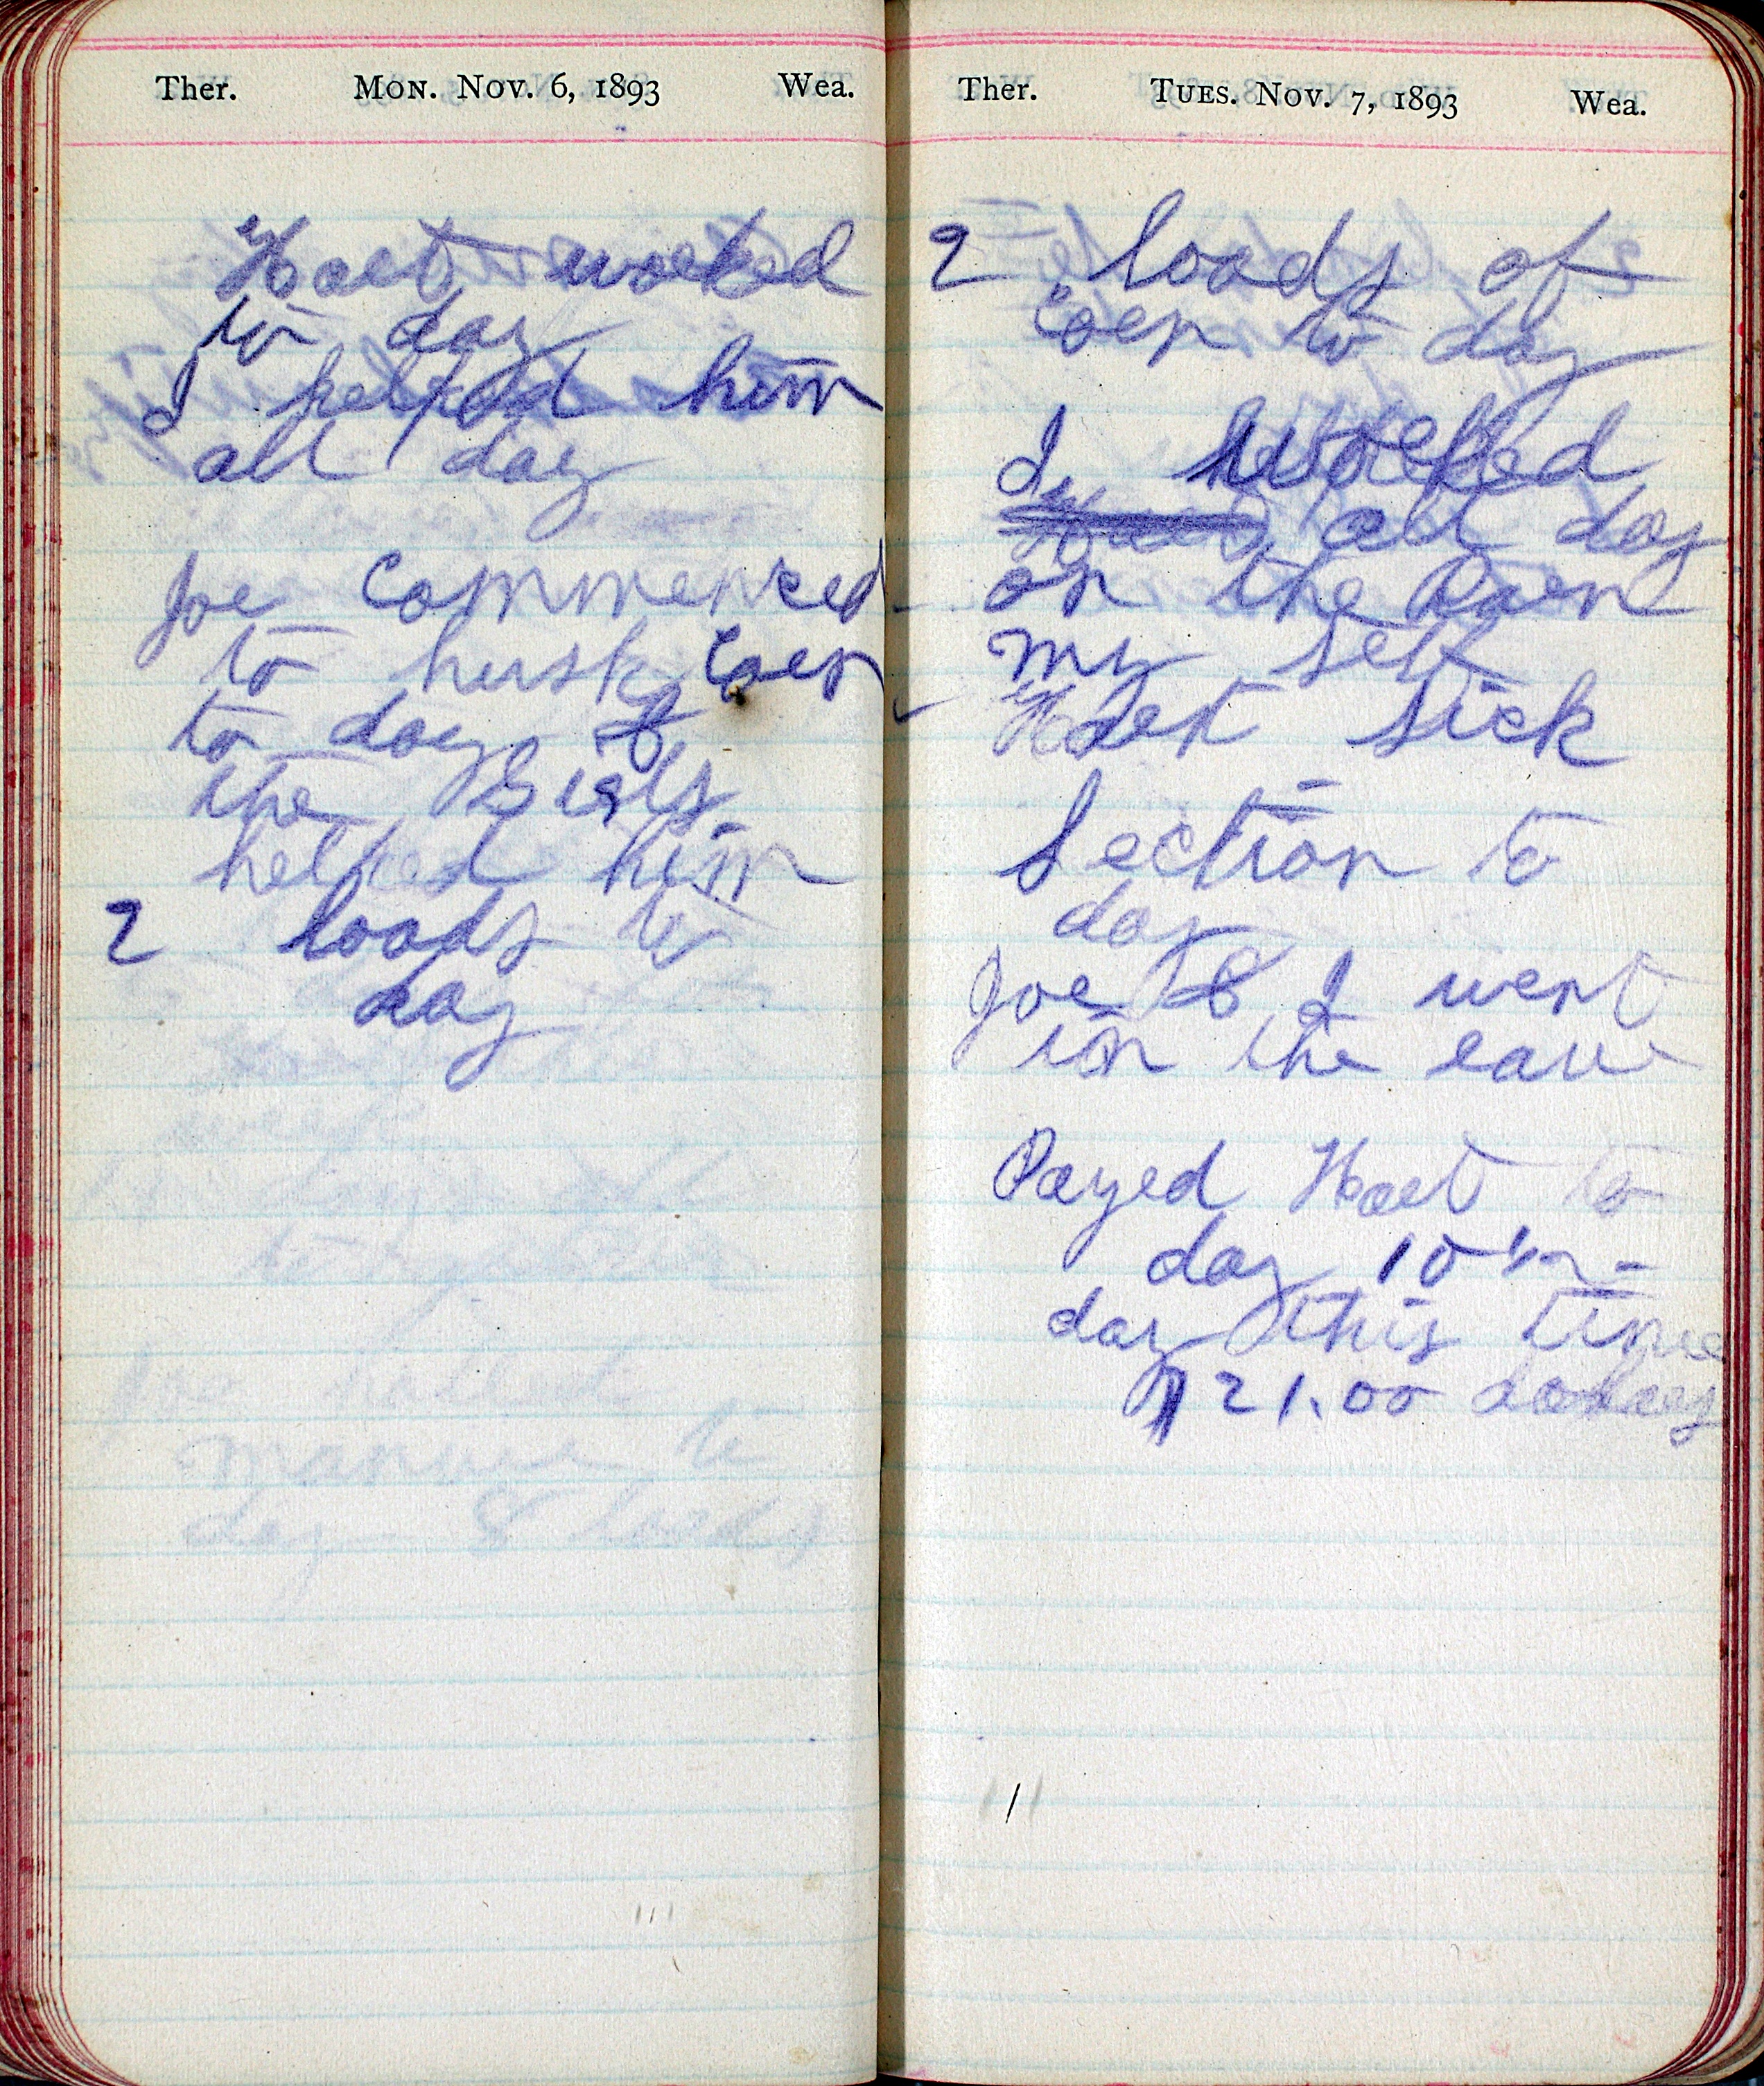 Ther. MON. NOV. 6, 1893 Wea.
Hart worked
to day
I helped him
all day
Joe commenced
to husk corn
to day &
the Girls
helped him
2 loads to
day
Joe halled
manure to
day 8 loads
Ther. TUES. NOV. 7, 1893 Wea.
2 loads of
corn to day
I worked
all day
on the barn
my self
Hart sick
lection to
day
Joe & I went
in the eave
Payed Hart to
day 10 1/2
day this time
$21.00 dollars